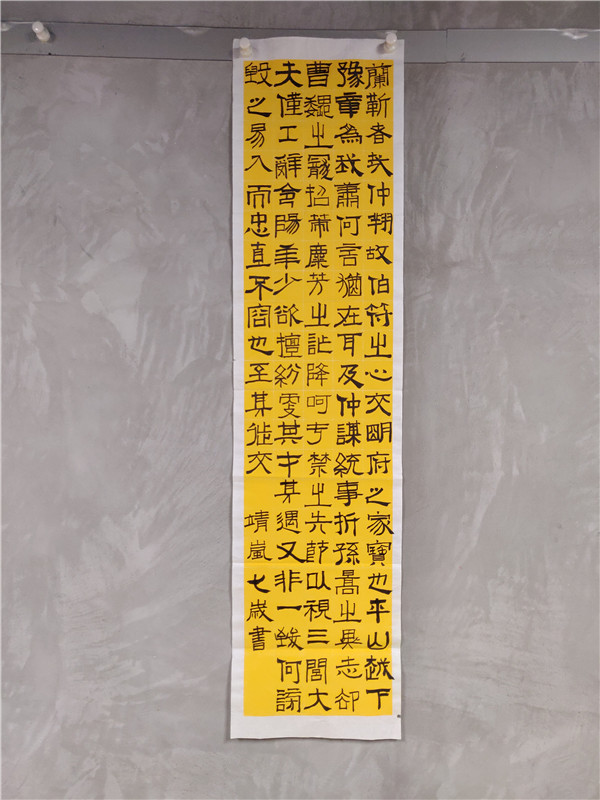 蘭靳春哉仲翔故伯符之心交明府之家寶也平山越下
豫章為我蕭何言猶在耳及仲謀統事折孫暠之異志卻
曹魏之寵招 麋芳之詐降呵于禁之失節以視三閭大
夫僅工辭令 少欲擅紛雯其才其遇又非一致何謗
毀之易入而忠直不容也至其徙交
靖嵐七歲書